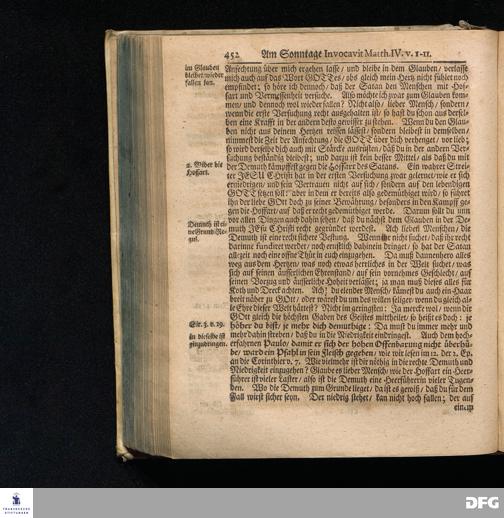 452 Am Sonntage Invocavit Matth. IV. v. 1-11.
im Glauben
bleibet, wieder
fallen kan.
Anfechtung über mich ergehen lasse/ und bleibe in dem Glauben/ verlasse
mich auch auf das Wort GOTTes/ obs gleich mein Hertz nicht fühlet noch
empfindet; so höre ich dennoch/ daß der Satan den Menschen mit Hof-
fart und Vermessenheit versuche. Also möchte ich zwar zum Glauben kom-
men/ und dennoch wol wieder fallen? Nicht also/ lieber Mensch/ sondern/
wenn du erste Versuchung recht ausgehalten ist/ so hast du schon aus dersel-
ben eine Krafft in der andern desto gewisser zu stehen. Wenn du den Glau-
ben nicht aus deinem Hertzen reissen lässest/ sondern bleibest in demselben/
nimmest die Zeit der Anfechtung/ die GOTT über dich verhenget/ vor lieb;
so wird derselbe dich auch mit Stärcke ausrüsten/ daß du in der andern Ver-
suchung beständig bleibest; und darzu ist kein besser Mittel/ als daß du mit
2. Wider die
Hoffart.
der Demuth kämpffest gegen die Hoffart des Satans. Ein wahrer Streit-
ter JESU CHristi hat in der ersten Versuchung zwar gelernet/ wie er sich
erniedrigen/ und sein Vertrauen nicht auf sich/ sondern auf den lebendigen
GOTT setzen soll: aber in dem er bereits also gedemüthiget wird/ so führet
ihn der liebe GOtt doch zu seiner Bewährung/ besonders in den Kampff ge-
gen die Hoffart/ auf daß er recht gedemüthiget werde. Darum sollt du nun
vor allen Dingen auch dahin sehen/ daß du nächst dem Glauben in der De-
Demuth ist ei-
muth JEsu Christi recht gegründet werdest. Ach lieben Menschen/ die
Demuth ist eine recht sichere Vestung. Wenn ihr nicht suchet/ daß ihr recht
darinne fundiret werdet/ noch ernstlich dahinein dringet/ so hat der Satan
allezeit noch eine offne Thür in euch einzugehen. Da muß dannenhero alles
weg aus dem Hertzen/ was noch etwas herrliches in der Welt suchet/ was
sich auf seinen äusserlichen Ehrenstand/ auf sein vornehmes Geschlecht/ auf
seinen Vorzug und äusserliche Hoheit verlässet; ja man muß dieses alles für
Koth und Dreck achten. Ach! du elender Mensch/ kämest du auch ein Haar
breit näher zu GOtt/ oder wärest du um des willen seliger/ wenn du gleich al-
le Ehre dieser Welt hättest? Nicht im geringsten: Ja mercke wol/ wenn dir
GOtt gleich die höchsten Gaben des Geistes mittheilet/ so heißt es doch: je
Sir. 3. v. 19.
höher du bist/ je mehr dich demüthige: Da must du immer mehr und
in dieselbe ist
einzudringen.
mehr dahin streben/ daß du in die Niedrigkeit eindringest. Auch dem hoch-
erfahrnen Paulo/ damit er sich der hohen Offenbarung nicht überhü-
be/ ward ein Pfahl in sein Fleisch gegeben/ wie wir lesen im 12. der 2. Ep.
an die Corinthier v. 7. Wie vielmehr ist dir nöthig in die rechte Demuth und
Niedrigkeit einzugehen? Glaube es lieber Mensch/ wie der Hoffart ein Heer-
führer ist vieler Laster/ also ist die Demuth eine Heerführerin vieler Tugen-
den. Wo die Demuth zum Grunde lieget/ da ist es gewiß/ daß du für dem
Fall wirst sicher seyn. Der niedrig stehet/ kan nicht hoch fallen; der auf
FRANCKESCHE
STIFTUNGEN
DFG